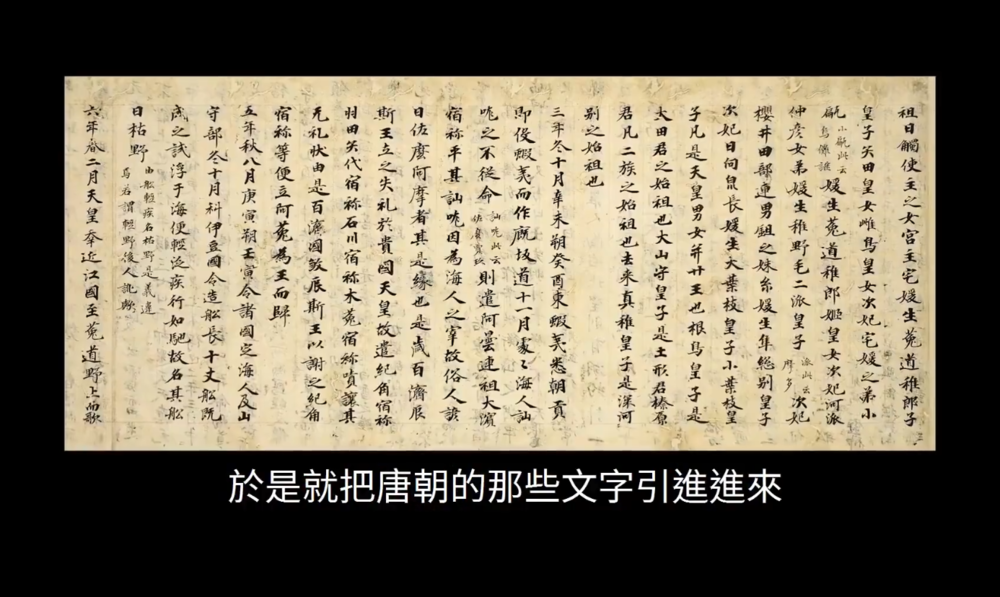 祖日觸使主之女宮主宅媛生菟道稚郎子
皇子矢田皇女雌鳥皇女次妃宅媛之弟小
甂小甂此云烏儺謎媛生菟道稚郎姬皇女次妃河派
仲彥女弟媛生稚野毛二派皇子派此云摩多次妃
櫻井田部連男鉏之妹糸媛生隼總别皇子
次妃日向泉長媛生大葉枝皇子小葉枝皇
子凡是天皇男女并廿王也根鳥皇子是
大田君之始祖也大山守皇子是土形君榛原
君凡二族之始祖也去来真稚皇子是深河
别之始祖也
三年冬十月辛未朔癸酉東蝦夷悉朝貢
即役蝦夷而作厩坂道十一月處〻海人訕
哤之不從命訕哤此云佐麼賣玖則遣阿曇連祖大濱
宿祢平其訕哤因為海人之宰故俗人諺
曰佐麼阿摩者其是緣也是歲百濟辰
斯王立之失礼於貴國天皇故遣紀角宿祢
羽田矢代宿祢石川宿祢木菟宿祢嘖讓其
无礼狀由是百濟國敘辰斯王以謝之紀角
宿祢等便立阿菟為王而歸
五年秋八月庚寅朔壬寅令諸國定海人及山
守部冬十月科伊豆國令造船長十丈船既
成之試浮于海便輕泛疾行如馳故名其船
曰枯野由船輕疾名枯野是義違焉若謂輕野後人訛歟
六年春二月天皇幸近江國至菟道野上而歌
於是就把唐朝的那些文字引進進來